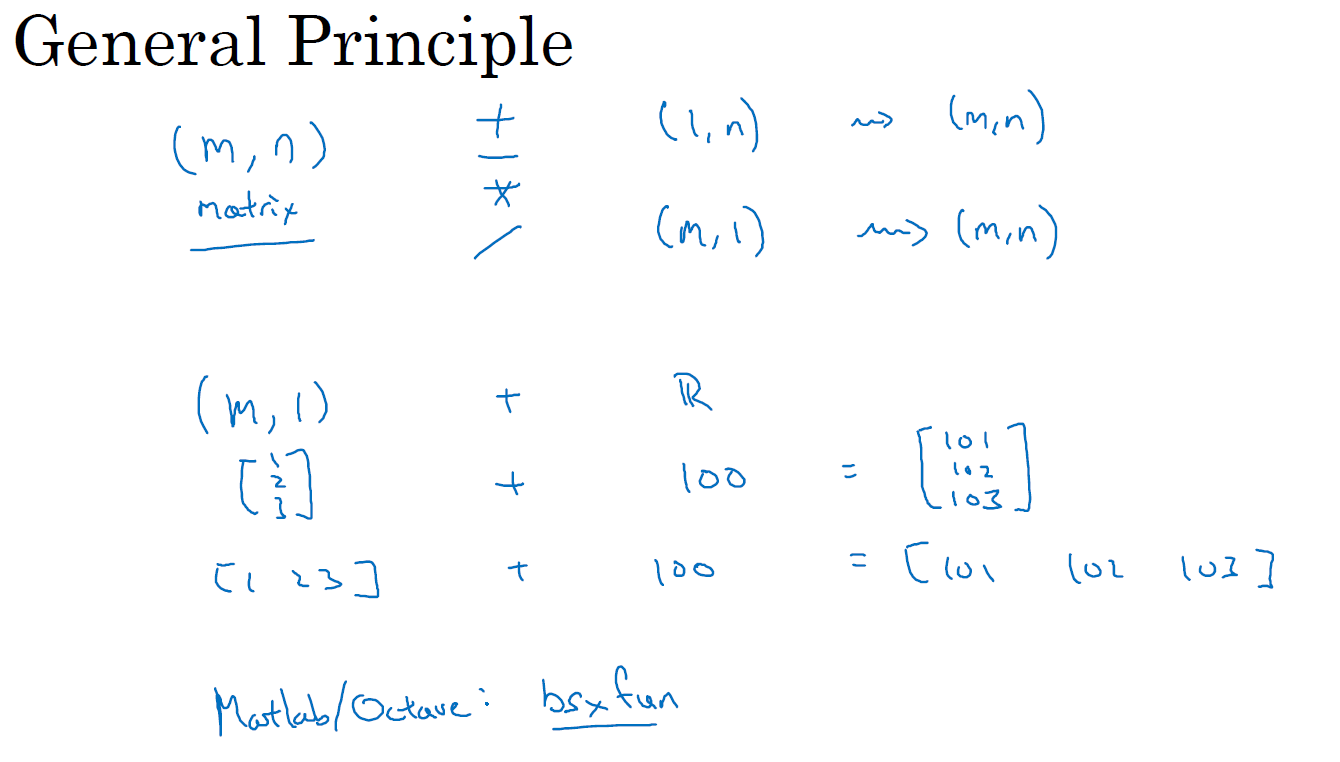 General Principle
(m, n) + (1, n) ⇝ (m, n)
matrix
-
*
/ (m, 1) ⇝ (m, n)
(m, 1) + ℝ
[1 2 3] + 100 = [101 102 103]
[1 2 3] + 100 = [101 102 103]
Matlab/Octave: bsxfun